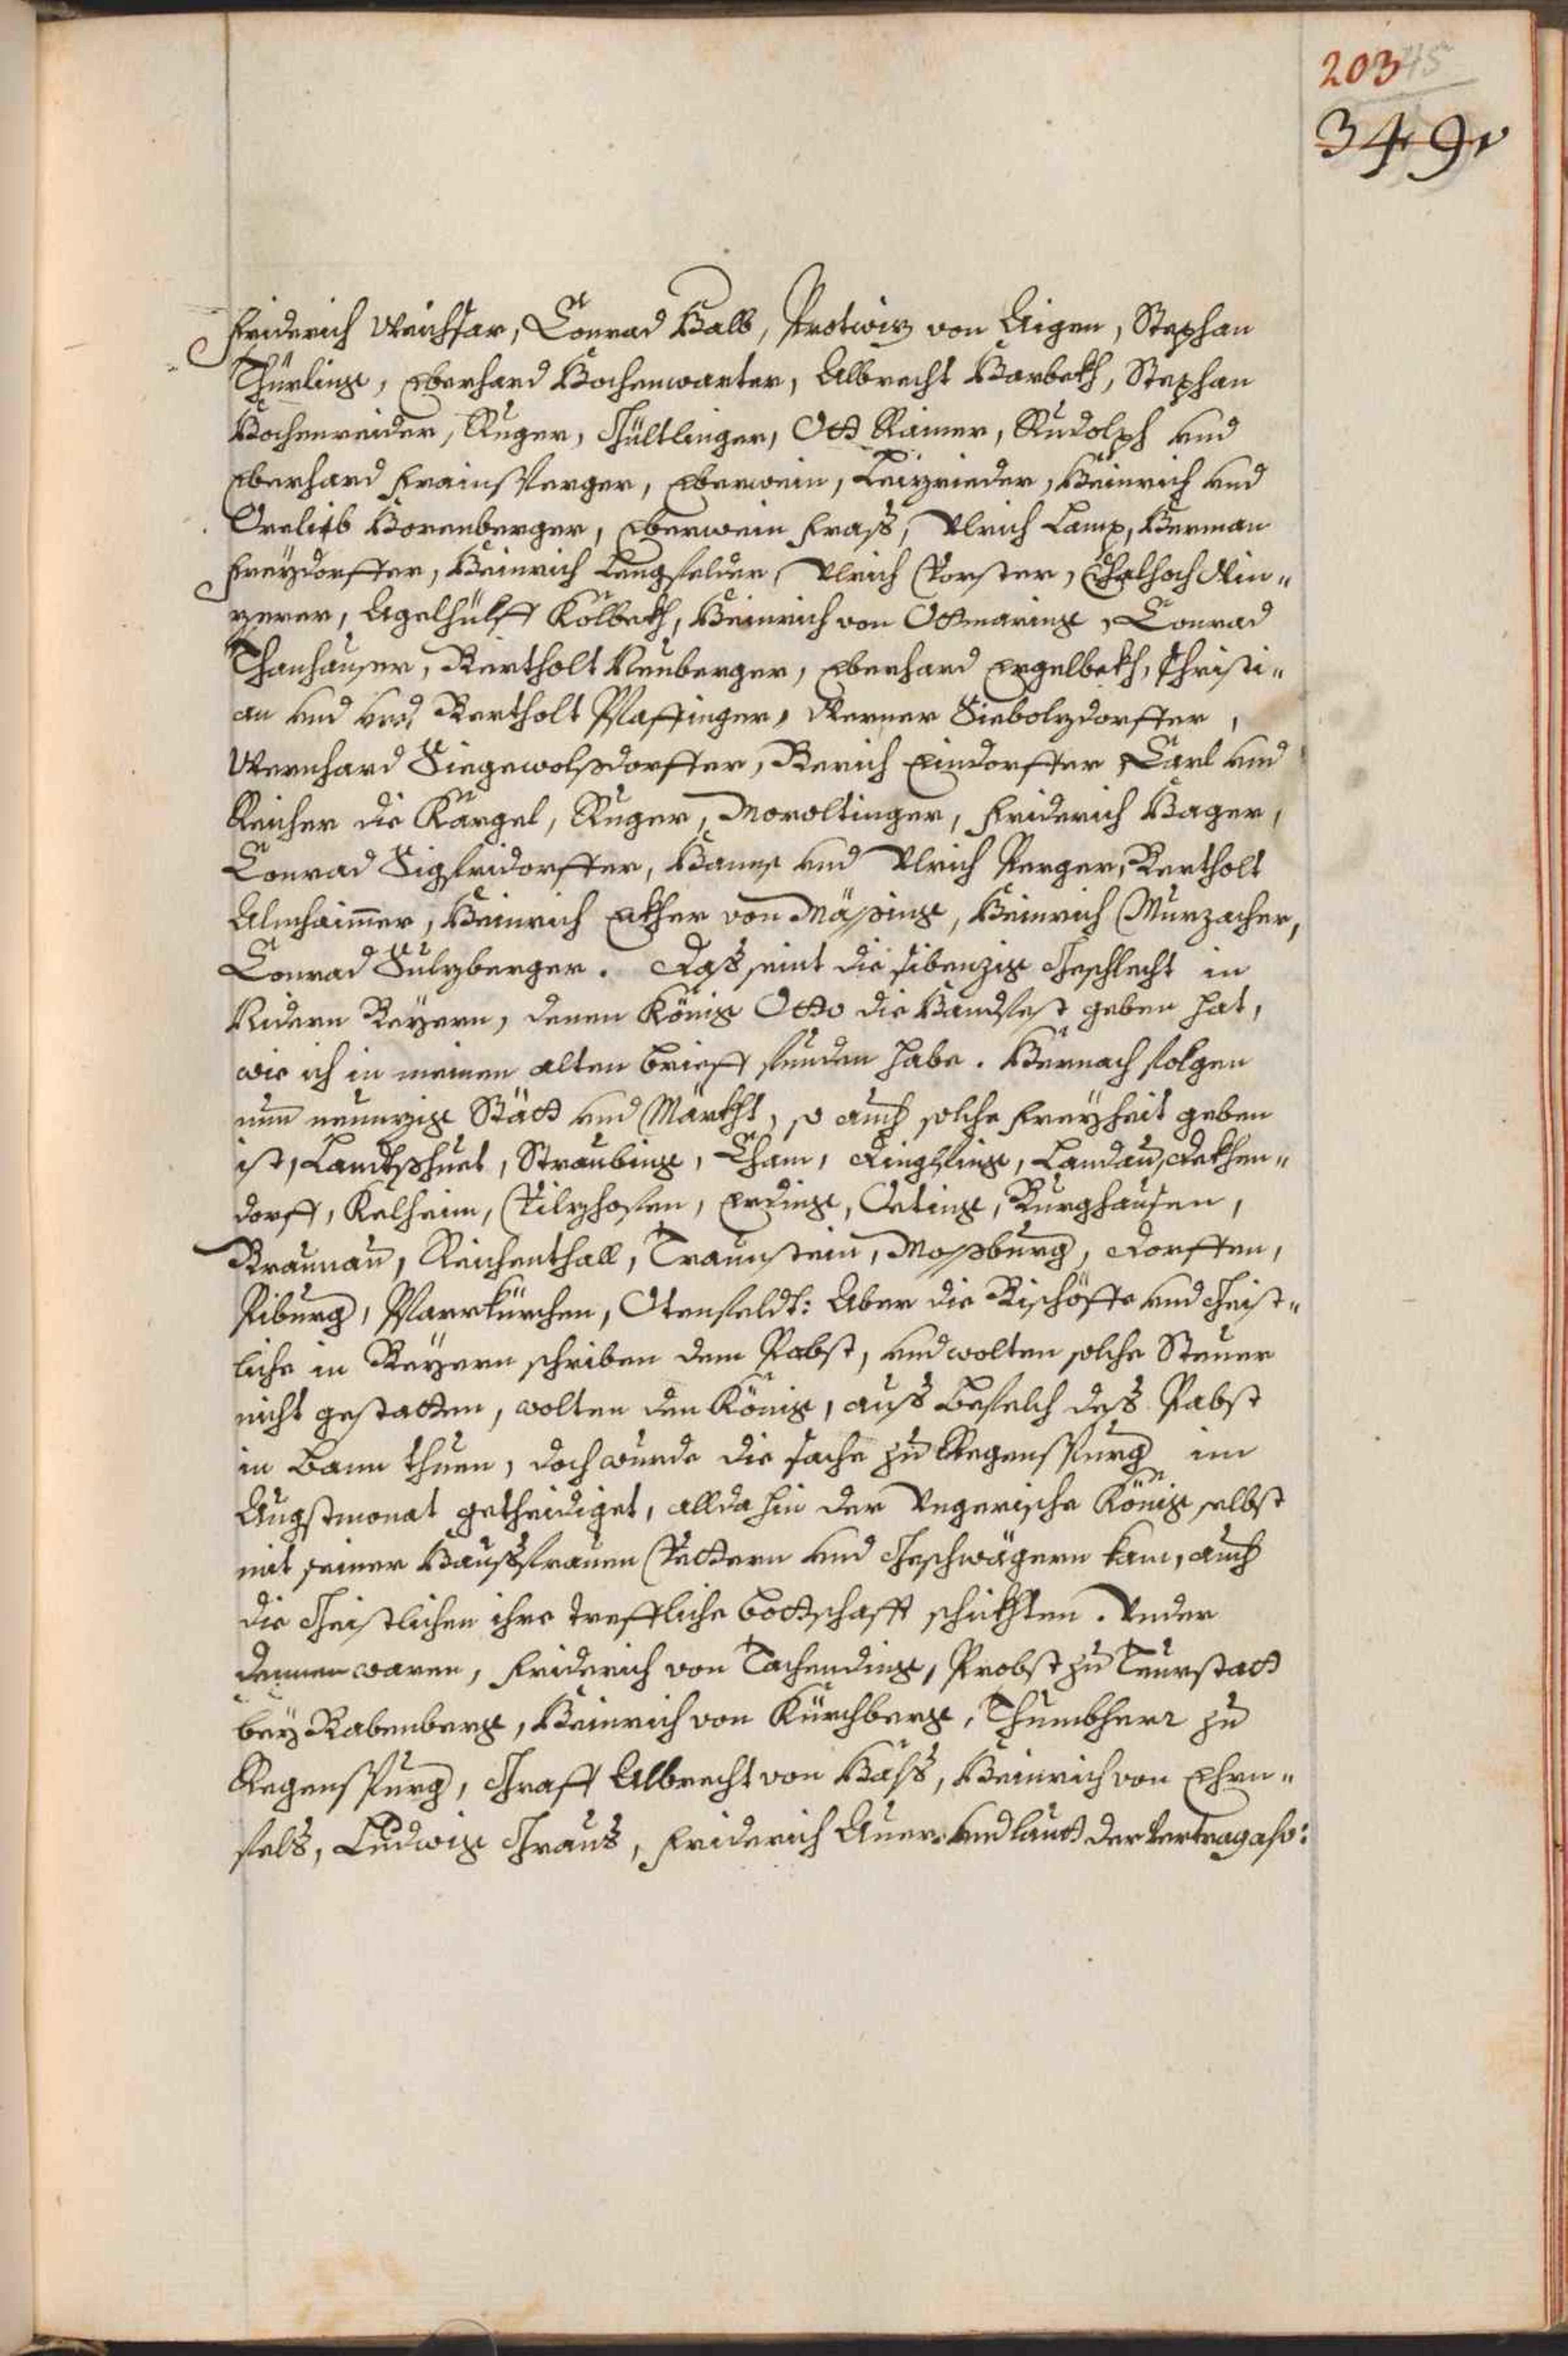 203 45
349
Friderich Weichsar, Conrad Halb, Protwiz von Aigen, Stephan
Thürling, Eberhard Hochenwarter, Albrecht Harbekh, Stephan
Hochenreider, Ruger, Gültlinger, Ott Rainer, Rudolph vnd
Eberhard Frainsperger, Eberwein, Leizrieder, Heinrich vnd
Ortlieb Horenberger, Eberwein Frass, Vlrich Lamp, Herman
Freÿdorffer, Heinrich Lengfelder, Vlrich Vorster, Chalhoch Min„
zerer, Agelhülff Kölbekh, Heinrich von Ottmaring, Conrad
Thanhauser, Bertholt Neuberger, Eberhard Ergelbekh, Christi„
an vnd Bertholt Pfaffinger, Werner Siebolzdorffer,
Wernhard Siegewolssdorffer, Berich Eindorffer, Carl vnd
Reicher die Kärgel, Ruger, Moroltinger, Friderich Hager,
Conrad Sigfridorffer, Hanns vnd Vlrich Perger, Bertholt
Almhaimmer, Heinrich Ekher von Mässing, Heinrich Murzacher,
Conrad Sulzberger. Dass seint die sibenzig Geschlecht in
Nidern Beÿern, denen König Otto die Handfest geben hat,
wie ich in meinen alten brieff funden habe. Hernach folgen
nun neunzig Stätt vnd Märkht, so auch solche Freÿheit geben
ist, Landtshuet, Straubing, Cham, Dinglfing, Landau, Dekhen„
dorff, Kelheim, Vilzhofen, Erding, Oeting, Burghausen,
Braunau, Reichenthall, Traunstein, Mossburg, Dorffen,
Riburg, Pfarrkürchen, Otenfeldt: Aber die Bischöffe vnd Geist„
liche in Beÿern schriben dem Pabst, vnd wolten solche Steuer
nicht gestatten, wolten den König, auss befelch dess Pabst
in Bann thuen, doch wurde die sache zu Regenspurg im
Augstmonat getheidiget, alldahin der Vngerische König selbst
mit seiner Haussfrauen Vettern vnd Geschwägern kam, auch
die Geistlichen ihre treffliche bottschafft schikhten. Vnder
dennen waren, Friderich von Tachending, Probst zu Teurstatt
beÿ Babenberg, Heinrich von Kürchberg, Thumbherr zu
Regenspurg, Graff Albrecht von Halss, Heinrich von Ehrn„
fels, Ludwig Grans, Friderich Auer. vnd lautt der Vertrag also: